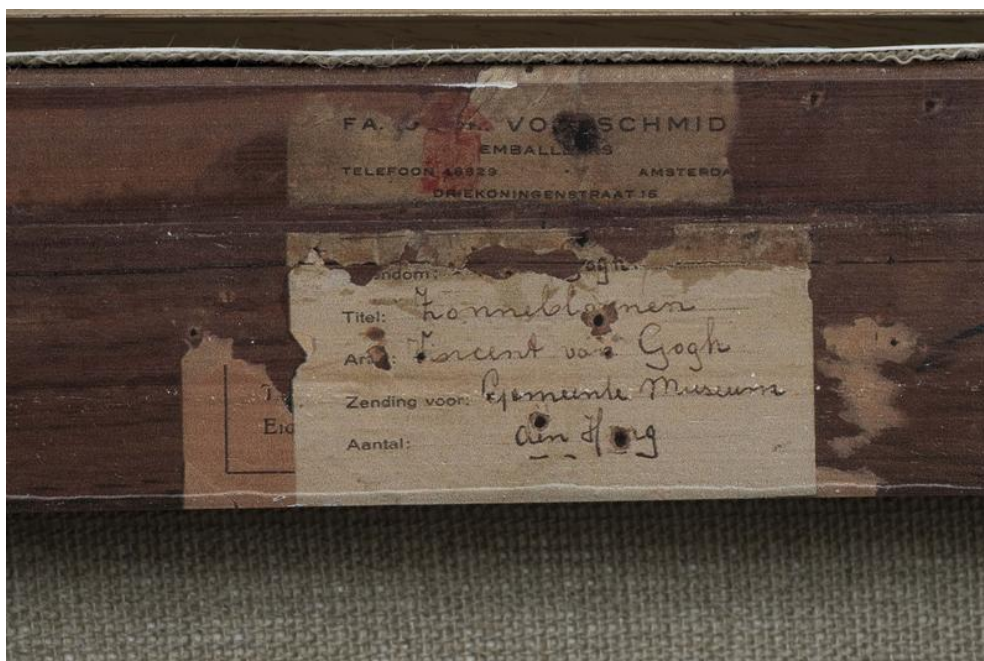 FA. VO SCHMID
EMBALLEURS
TELEFOON 49829 AMSTERDA
DRIEKONINGENSTRAAT 15
endom: ogh.
Titel: Zonnebloemen
Vincent van Gogh
Zending voor: Gemeente Museum
Aantal: den Haag
T.
Eig